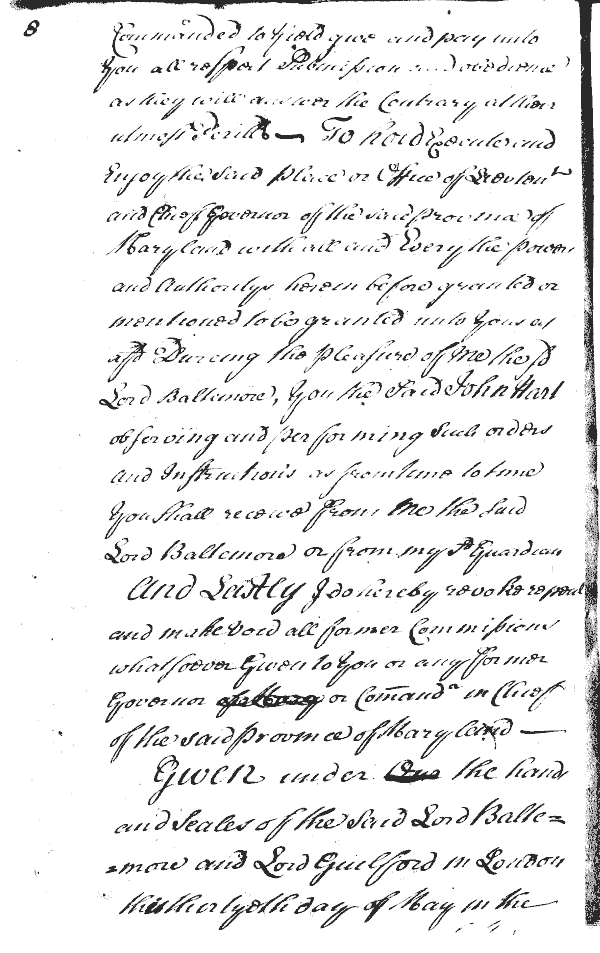 8
Commanded to yield give and pay unto
You all respect Submission and obedience
as they will answer the Contrary at their
utmost Perills — To hold Execute and
Enjoy the said place or Office of Lieutent
and Chief Governor of the said province of
Maryland with all and Every the powers
and Authoritys herein before granted or
mentioned to be granted unto you as
afsd During the pleasure of Me the sd
Lord Baltemore, You the Said John Hart
observing and performing Such orders
and Instructions as from time to time
You Shall receive from Me the Said
Lord Baltemore or from my sd Guardian
And Lastly I do hereby revoke repeal
and make Void all former Commissions
whatsoever Given to You or any former
Governor or Comandr in Chief
of the said province of Maryland —
Given under the hands
and Seales of the Said Lord Balte=
=more and Lord Guilford in London
this thirtyeth day of May in the